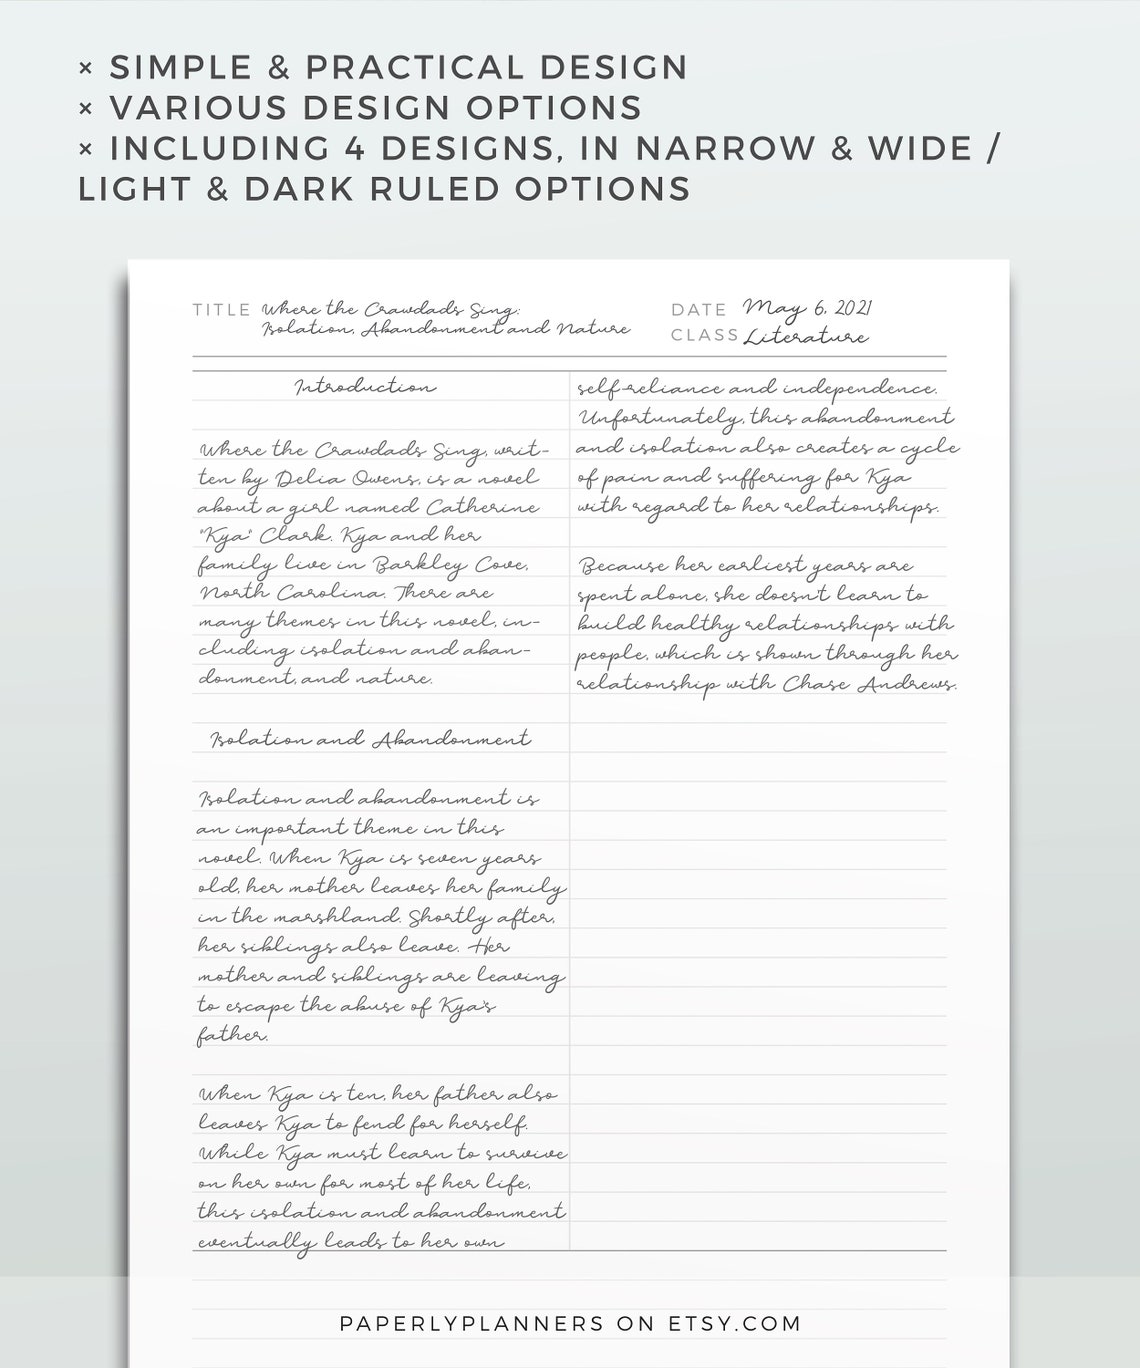 × SIMPLE & PRACTICAL DESIGN
× VARIOUS DESIGN OPTIONS
× INCLUDING 4 DESIGNS, IN NARROW & WIDE /
LIGHT & DARK RULED OPTIONS
TITLE Where the Crawdads Sing:
Isolation, Abandonment and Nature
DATE May 6, 2021
CLASS Literature
Introduction
Where the Crawdads Sing, writ-
ten by Delia Owens, is a novel
about a girl named Catherine
"Kya" Clark. Kya and her
family live in Barkley Cove,
North Carolina. There are
many themes in this novel, in-
cluding isolation and aban-
donment, and nature.
Isolation and Abandonment
Isolation and abandonment is
an important theme in this
novel. When Kya is seven years
old, her mother leaves her family
in the marshland. Shortly after,
her siblings also leave. Her
mother and siblings are leaving
to escape the abuse of Kya's
father.
When Kya is ten, her father also
leaves Kya to fend for herself.
While Kya must learn to survive
on her own for most of her life,
this isolation and abandonment
eventually leads to her own
self-reliance and independence.
Unfortunately, this abandonment
and isolation also creates a cycle
of pain and suffering for Kya
with regard to her relationships.
Because her earliest years are
spent alone, she doesn't learn to
build healthy relationships with
people, which is shown through her
relationship with Chase Andrews.
PAPERLYPLANNERS ON ETSY.COM